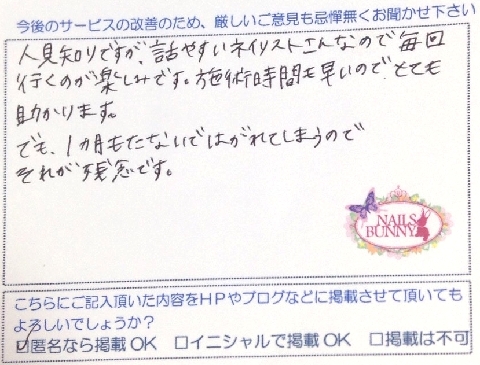 今後のサービスの改善のため、厳しいご意見も忌憚無くお聞かせ下さい
人見知りですが、話やすいネイリストさんなので毎回
行くのが楽しみです。施術時間も早いので、とても
助かります。
でも、1カ月もたないではがれてしまうので
それが残念です。
NAILS
BUNNY
こちらにご記入頂いた内容をHPやブログなどに掲載させて頂いても
よろしいでしょうか?
☑匿名なら掲載OK □イニシャルで掲載OK □掲載は不可